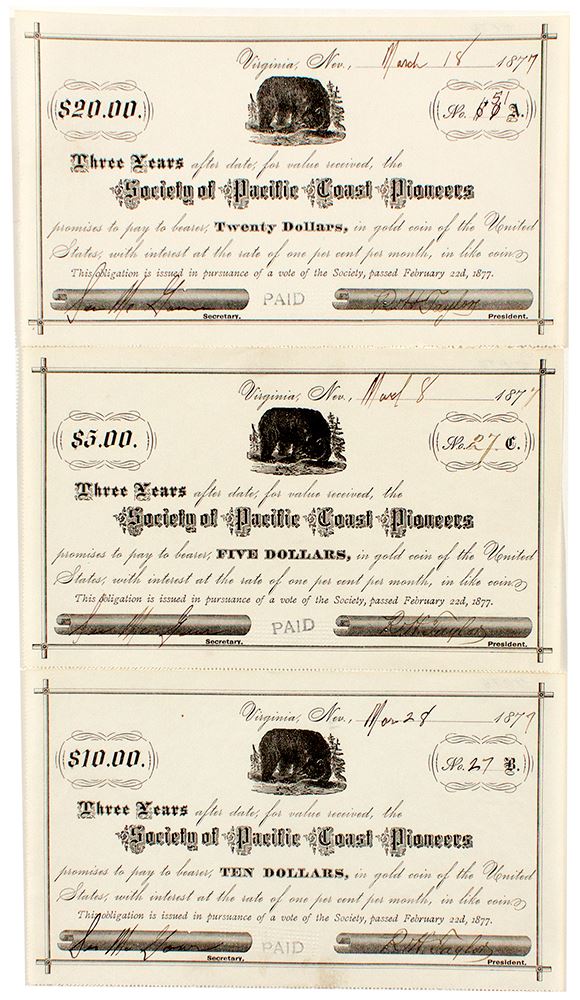 Virginia, Nev., March 18 1877
$20.00. No. 51 A.
Three Years after date, for value received, the
Society of Pacific Coast Pioneers
promises to pay to bearer, Twenty Dollars, in gold coin of the United
States, with interest at the rate of one per cent per month, in like coin
This obligation is issued in pursuance of a vote of the Society, passed February 22d, 1877.
PAID R. H. Taylor
Secretary. President.
Virginia, Nev., March 8 1877
$5.00. No. 27 C.
Three Years after date, for value received, the
Society of Pacific Coast Pioneers
promises to pay to bearer, FIVE DOLLARS, in gold coin of the United
States, with interest at the rate of one per cent per month, in like coin
This obligation is issued in pursuance of a vote of the Society, passed February 22d, 1877.
PAID R. H. Taylor
Secretary. President.
Virginia, Nev., Mar 28 1877
$10.00. No. 27 B.
Three Years after date, for value received, the
Society of Pacific Coast Pioneers
promises to pay to bearer, TEN DOLLARS, in gold coin of the United
States, with interest at the rate of one per cent per month, in like coin
This obligation is issued in pursuance of a vote of the Society, passed February 22d, 1877.
PAID R. H. Taylor
Secretary. President.